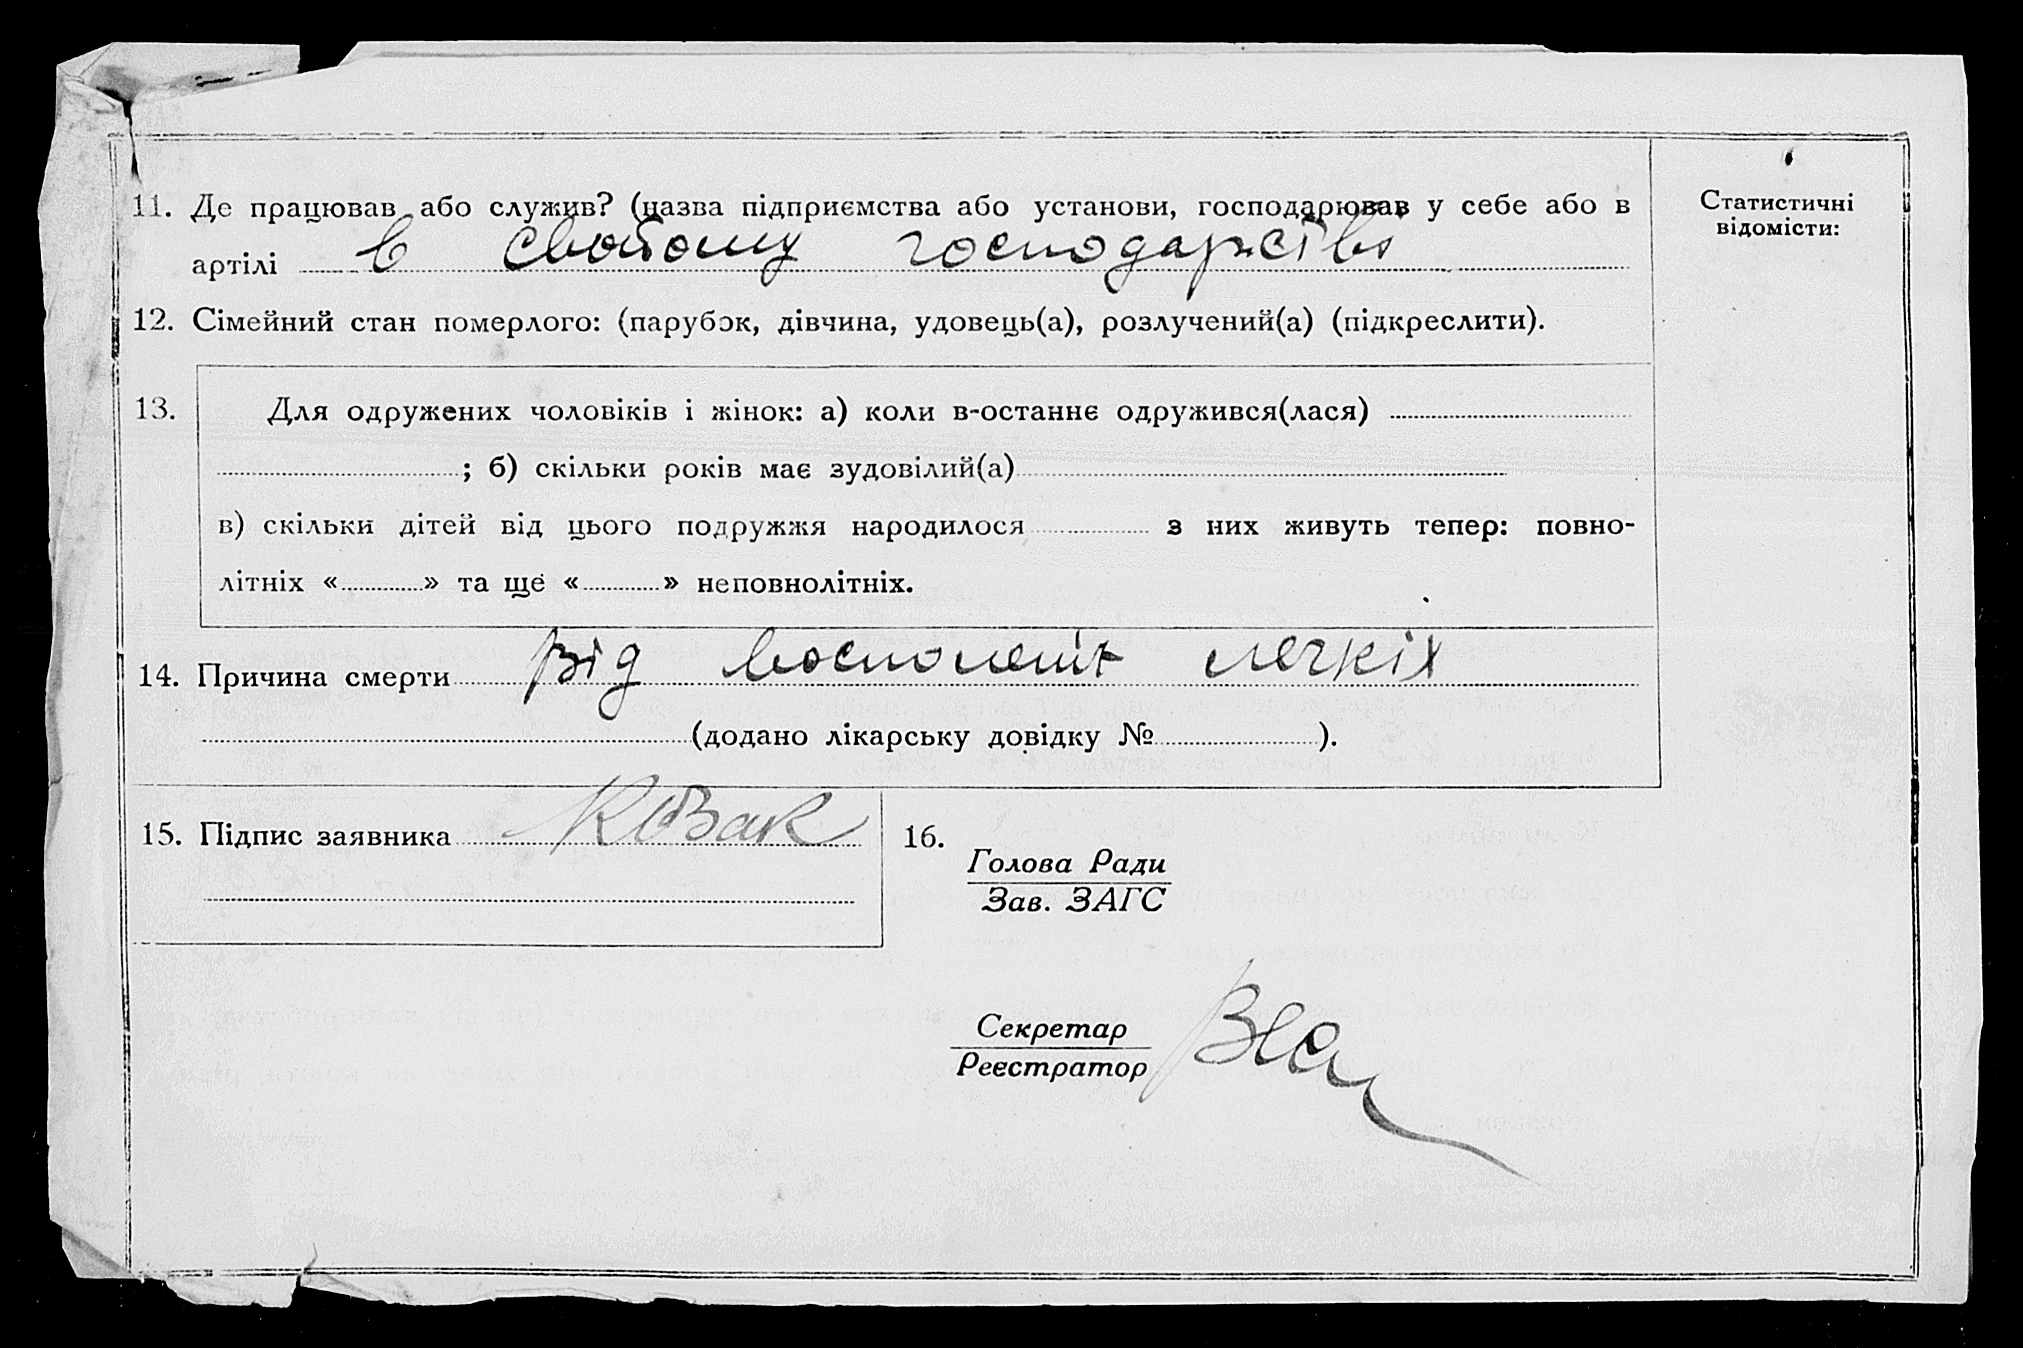 11. Де працював або служив? (назва підприємства або установи, господарював у себе або в
артілі в свойому господарстві
Статистичні
відомісти:
12. Сімейний стан померлого: (парубок, дівчина, удовець(а), розлучений(а) (підкреслити).
13. Для одружених чоловіків і жінок: а) коли в-останнє одружився(лася)
; б) скільки років має зудовілий(а)
в) скільки дітей від цього подружжя народилося з них живуть тепер: повно-
літніх «» та ще «» неповнолітніх.
14. Причина смерти від легкіх
(додано лікарську довідку №).
15. Підпис заявника
16.
Голова Ради
Зав. ЗАГС
Секретар
Реєстратор